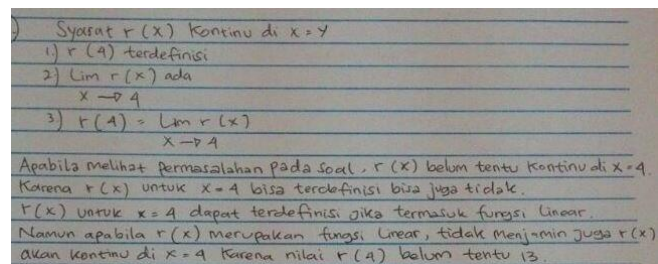 Syarat r (x) kontinu di x = y
1.) r (4) terdefinisi
2) Lim r (x) ada
x → 4
3) r (4) = Lim r (x)
x → 4
Apabila melihat permasalahan pada soal, r (x) belum tentu kontinu di x = 4.
Karena r (x) untuk x = 4 bisa terdefinisi bisa juga tidak.
r (x) untuk x = 4 dapat terdefinisi jika termasuk fungsi linear.
Namun apabila r (x) merupakan fungsi linear, tidak menjamin juga r (x)
akan kontinu di x = 4 karena nilai r (4) belum tentu 13.